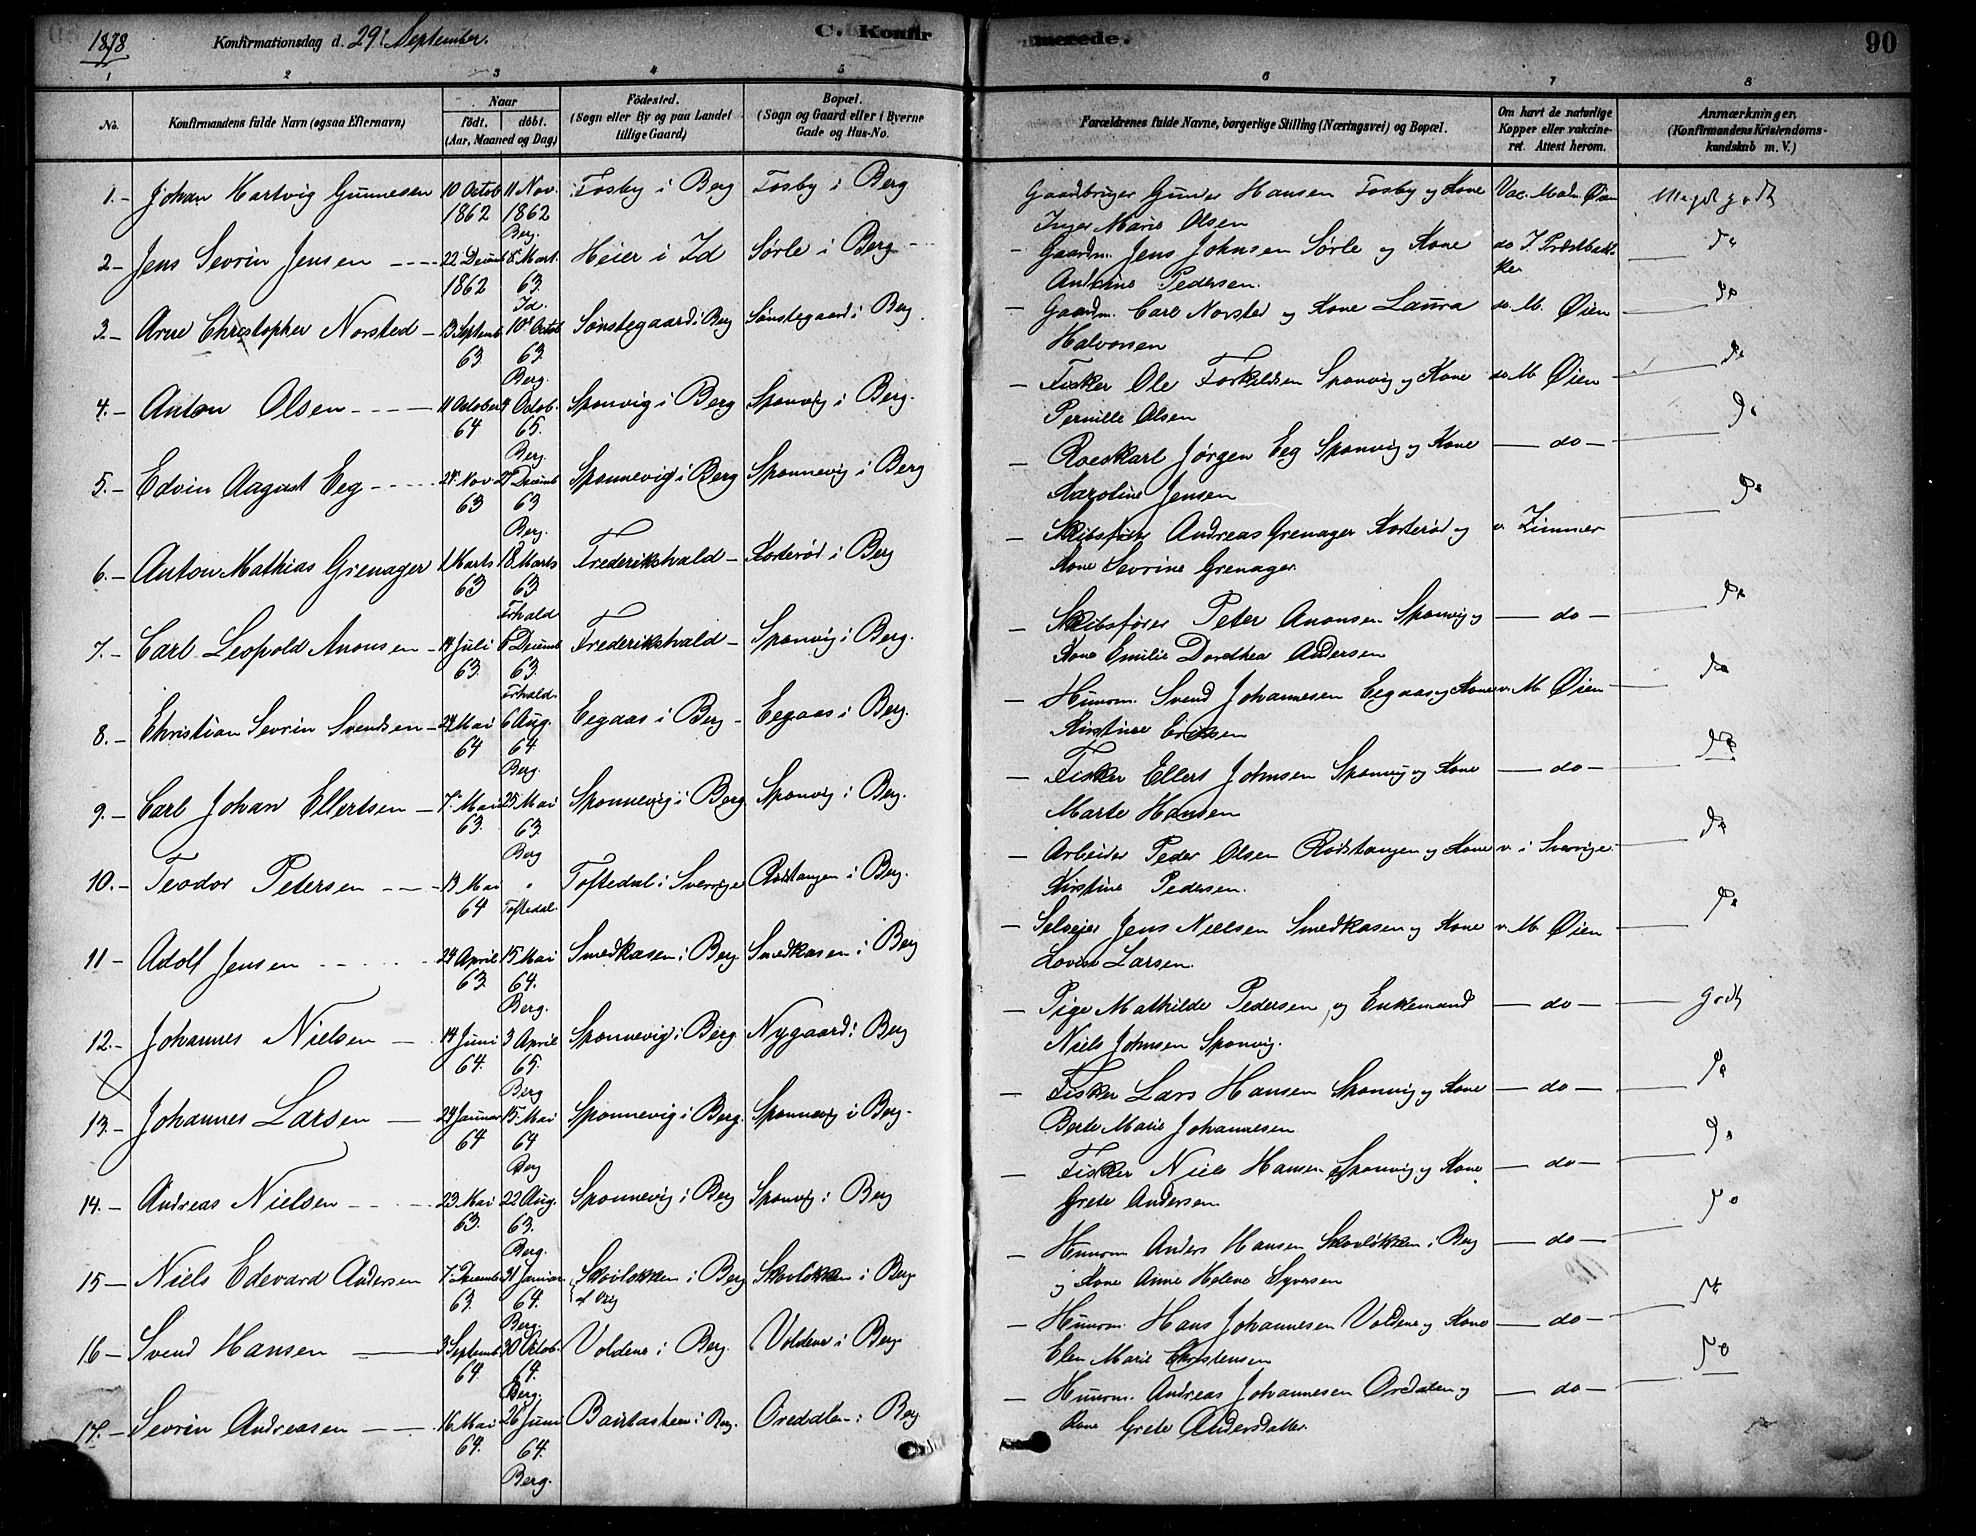 1878 Konfirmationsdag d. 29. September. C. Konfirmerede. 90
1 2 3 4 5 6 7 8
No. Konfirmandens fulde Navn (ogsaa Efternavn) Naar født. døbt. (Aar, Maaned og Dag) Fødested. (Sogn eller By og paa Landet tillige Gaard) Bopæl. (Sogn og Gaard eller i Byerne Gade og Hus-No. Forældrenes fulde Navne, borgerlige Stilling (Næringsvei) og Bopæl. Om havt de naturlige Kopper eller vakcineret. Attest herom. Anmærkninger, (Konfirmandens Kristendomskundskab m. V.)
1.- Johan Hartvig Gunnesen 10 Octob 11 Nov. Fosby i Berg Fosby i Berg Gaardbruger Gunder Hansen Fosby og Kone Vac. Mad. Øien Meget godt
1862 1862 Berg. Inger Marie Olsen
2- Jens Sevrin Jensen 22 Decemb 8 Mart. Heier i Id Sørle i Berg Gaardm. Jens Johnsen Sørle og Kone do J. Præstbakke do
1862 63. Id. Andrine Pedersen.
3.- Arne Christopher Norsted 13 Septemb 10 Octob Sønstegaard i Berg Sønstegaard i Berg. Gaardm. Carl Norsted og Kone Laura do M. Øien do
63 63. Berg. Halvorsen
4.- Anton Olsen 11 October 9 Octob. Sponvig i Berg Sponvig i Berg. Fisker Ole Torkildsen Sponvig og Kone do M Øien do
64 65. Berg. Pernille Olsen
5.- Edvin August Eeg 24 Nov 27 Decemb Sponnevig i Berg Sponnevig i Berg Roeskarl Jørgen Eeg Sponvig og Kone do do
63 63 Berg. Karoline Jensen
6.- Anton Mathias Grenager 1 Marts 18 Marts Frederikshald Korterød i Berg Skibsfører Andreas Grenager Korterød og v. Zimmer do
63 63. Frhald Kone Sevrine Grenager.
7.- Carl Leopold Anonsen 14 Juli 6 Decemb Frederikshald Sponvig i Berg. Skibsfører Peter Anonsen Sponvig og do do
63. 63. Frhald. Kone Emilie Dorothea Andersen
8.- Christian Sevrin Svendsen 24 Mai 6 Aug. Eegaas i Berg Eegaas i Berg. Huusm. Svend Johannesen Eegaas og Kone v. M. Øien do
64 64 Berg. Kirstine Eriksen
9.- Carl Johan Ellertsen 7 Mai 25 Mai Sponnevig i Berg Sponvig i Berg. Fisker Ellert Johnsen Sponvig og Kone do do
63. 63. Berg Marte Hansen
10.- Teodor Petersen 13 Mai " Toftedal i Sverrige Rødstangen i Berg. Arbeider Peder Olsen Rødstangen og Kone v. i Sverrige do
64 Toftedal. Kirstine Pedersen.
11- Adolf Jensen 24 April 15 Mai Smedkasen i Berg Smedkasen i Berg Selveier Jens Nielsen Smedkasen og Kone v. M. Øien do
63 64. Berg. Lovise Larsen.
12.- Johannes Nielsen 14 Juni 3 April Sponnevig i Berg. Nygaard i Berg Pige Mathilde Pedersen og Enkemand do godt
64. 65. Berg Niels Johnsen Sponvig.
13.- Johannes Larsen 24 Januar 15 Mai Sponnevig i Berg. Sponnevig i Berg. Fisker Lars Hansen Sponvig og Kone do do
64 64 Berg Berte Marie Johannesen
14.- Andreas Nielsen 23 Mai 22 Aug. Sponnevig i Berg Sponvig i Berg Fisker Niels Hansen Sponvig og Kone do do
63. 63. Berg. Grete Andersen
15- Niels Edevard Andersen 7 Decemb 31 Januar Skovløkken i Berg Skovløkken i Berg Huusm Anders Hansen Skovløkken i Berg do do
63. 64. Berg. og Kone Anne Helene Syversen
16- Svend Hansen 3 Septemb 30 Octob. Voldene i Berg. Voldene i Berg. Huusm. Hans Johannesen Voldene og Kone do do
64 64. Berg. Elen Marie Christensen
17.- Sevrin Andreasen 16 Mai 26 Juni Bautasteen i Berg. Oreddlen i Berg Huusm. Andreas Johannesen Ordalen og do do
64. 64. Berg. Kone Grete Andersdatter.